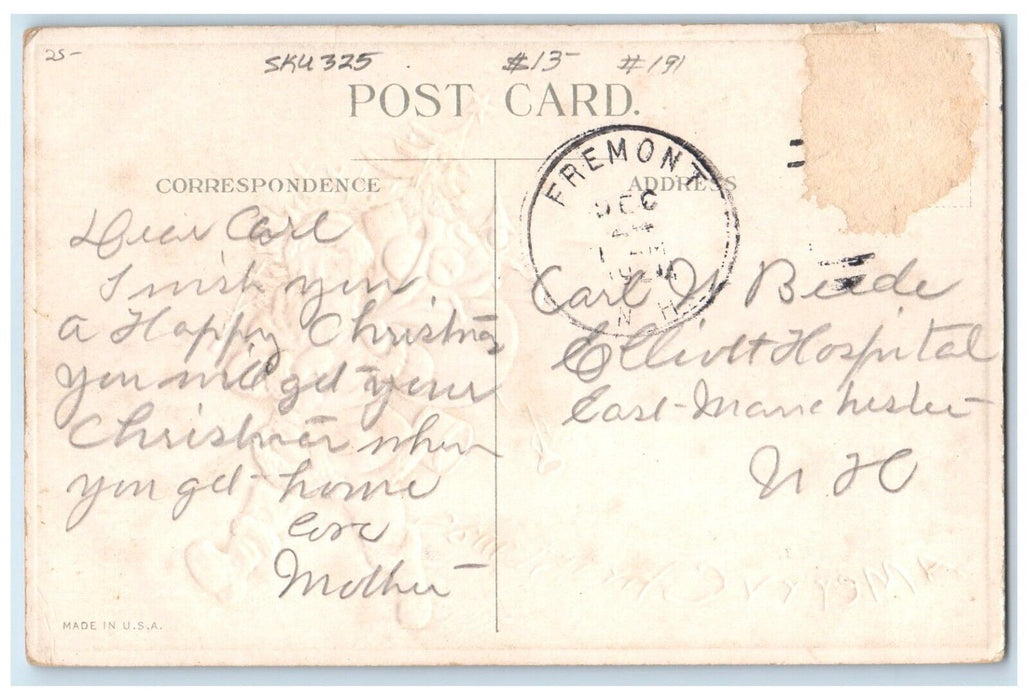 25-
SKU 325 $13- #191
POST CARD.
CORRESPONDENCE
ADDRESS
FREMONT
DEC
24
AM
N. H.
Dear Carl
I wish you
a Happy Christmas
you will get your
Christmas when
you get home
Love
Mother
Carl N Beede
Elliott Hospital
East Manchester
N H
A Merry Christmas
MADE IN U.S.A.